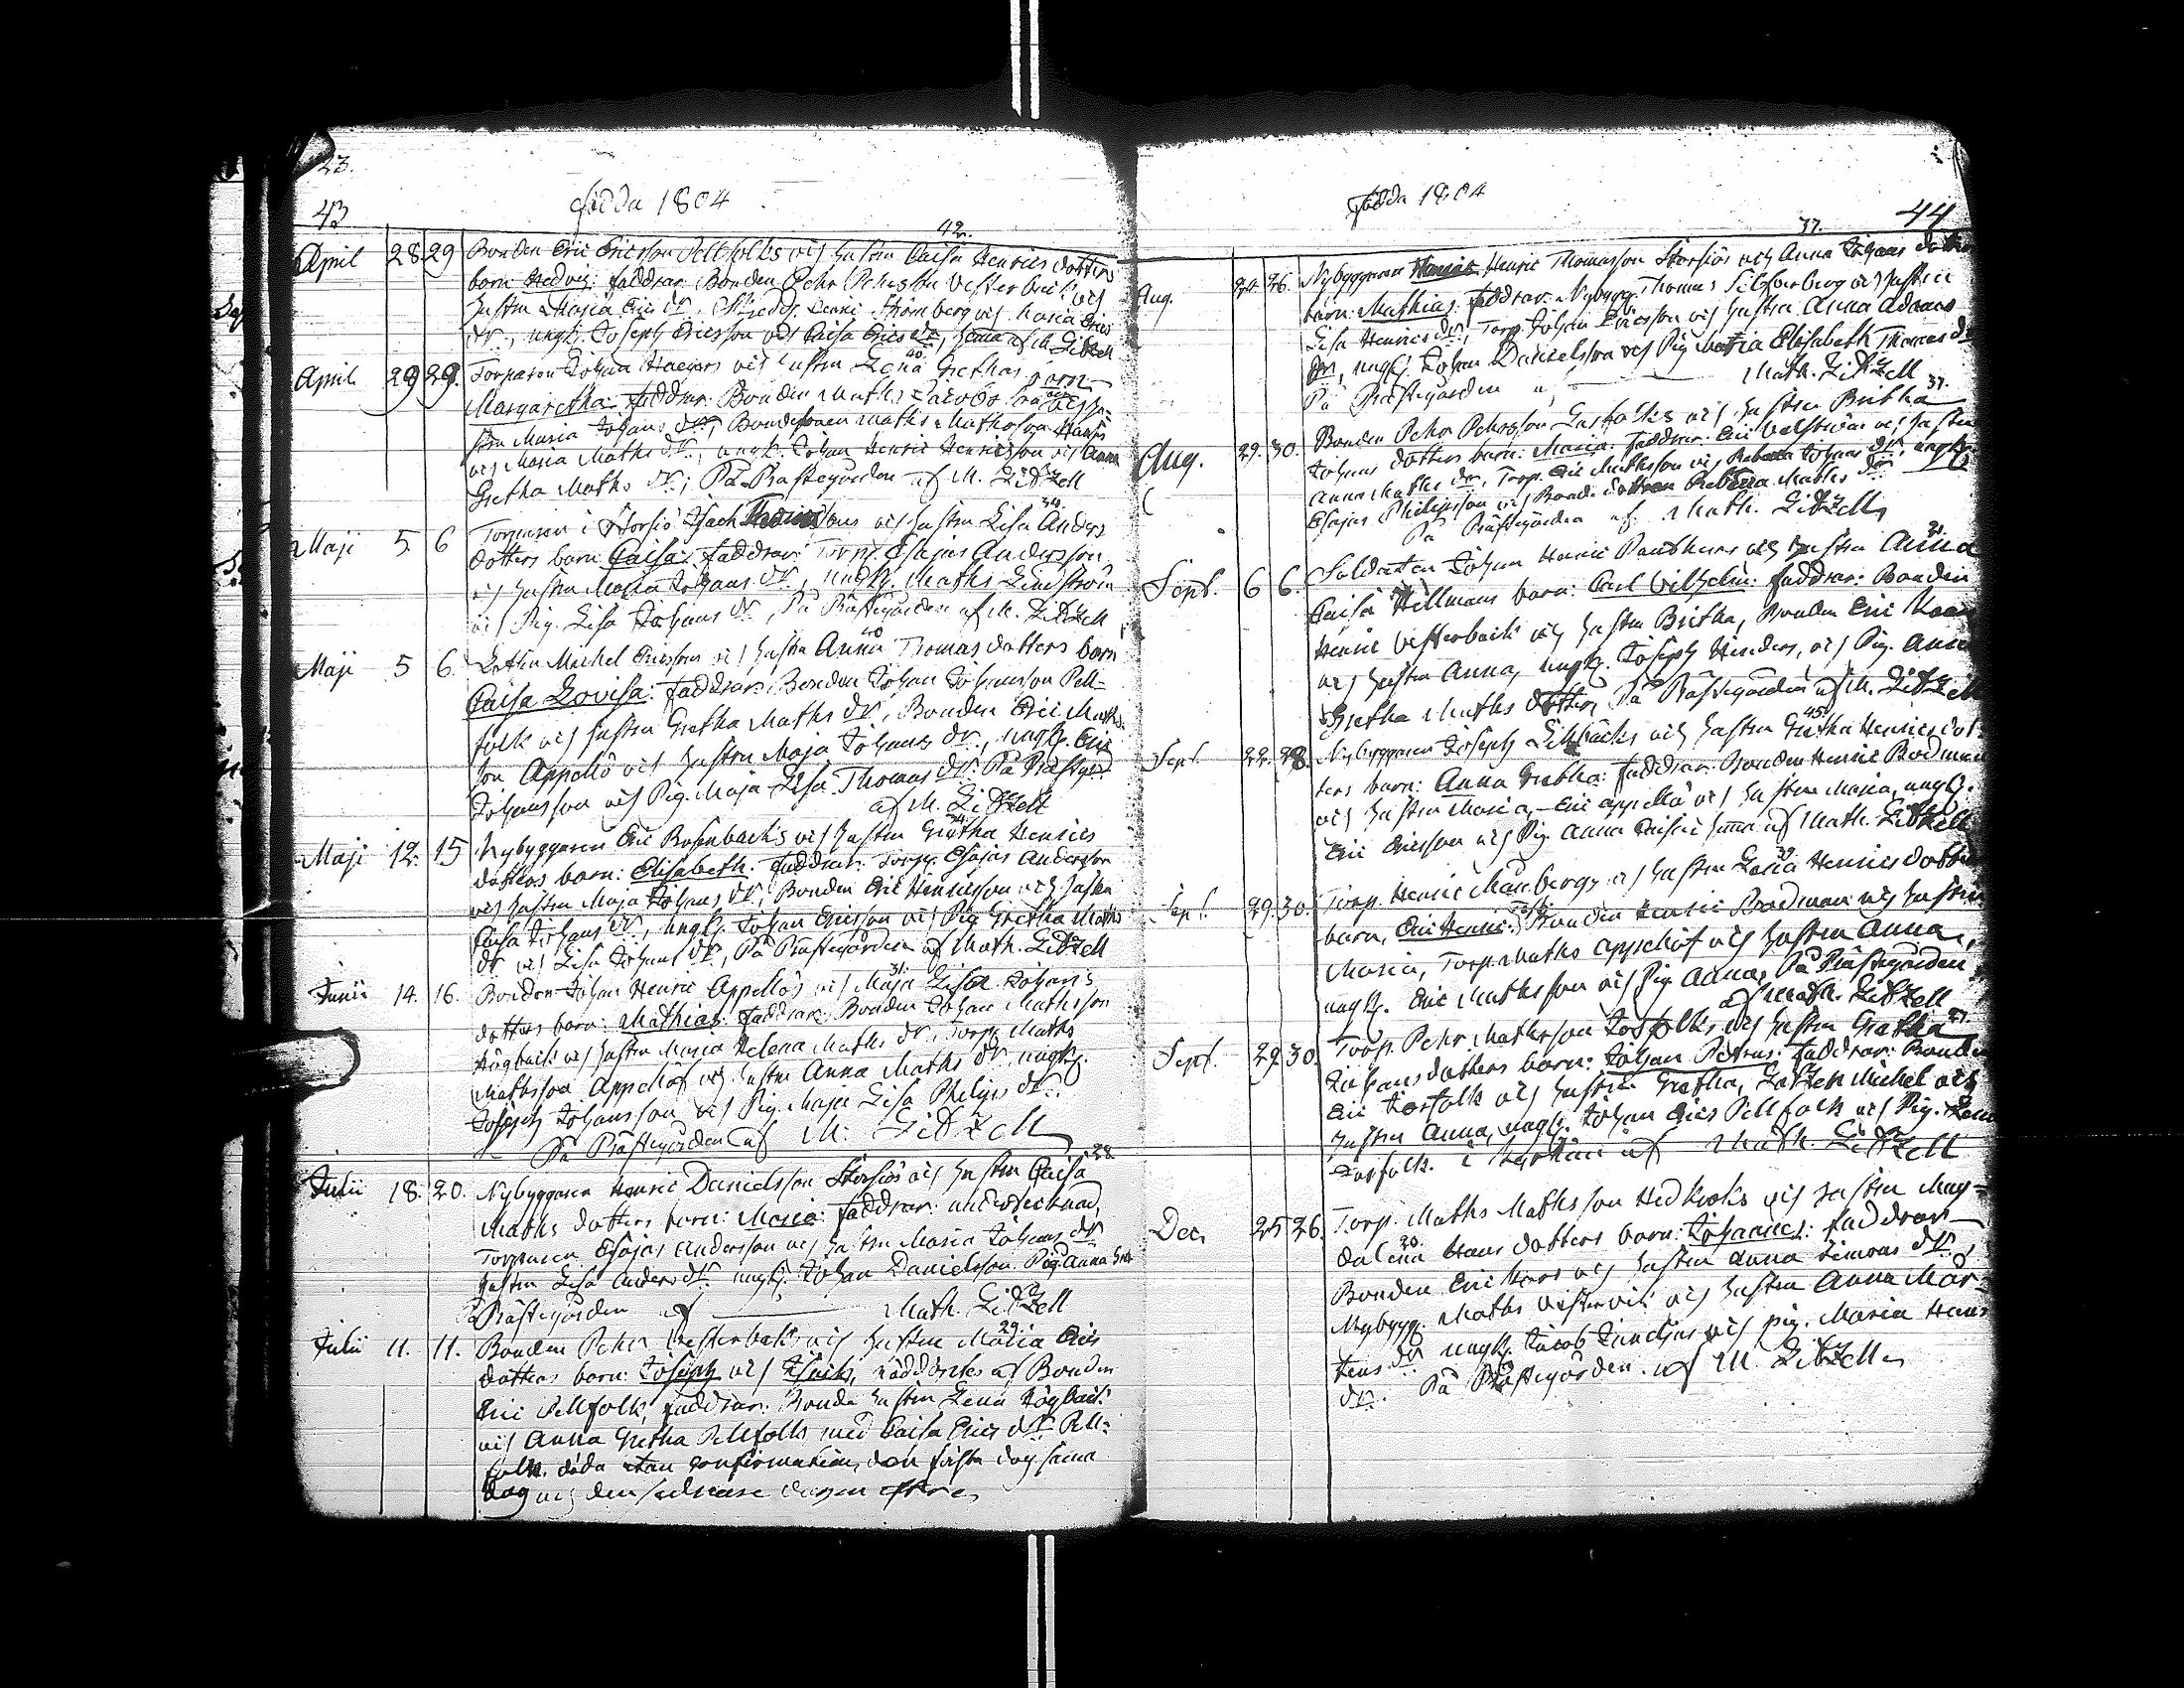 23.
43
födda 1804
42.
April 28 29 Bonden Eric Ericsson Pellfolks och hustru Caisa Henrics dotters
barn Hedvig: faddrar: Bonden Pehr Pehrsson Vesterback och
hustru Maria Erics dr, Henric Strömberg och Maria Erics
dr, ungk. Joseph Ericsson och Caisa Erics dr, hemma af M. Litzell
40.
April 29 29. Torparen Johan Hagers och hustru Lena Grethas barn
Margaretha: faddrar: Bonden Maths Jacobs och hu-
stru Maria Johans dr, Bondesonen Maths Mathsson
och Maria Maths dr, ungk. Johan Henric Henricsson och Anna
Gretha Maths dr, På Prästegården af M. Litzell
34.
Maji 5. 6 Torparen i Storsjö Isach och hustru Lisa Anders
dotters barn Caisa: faddrar: Torp. Esajas Andersson
och hustru Maria Johans dr, ungk. Maths Lindström
och Pig. Lisa Johans dr, På Prästegården af M. Litzell
40
Maji 5 6. Michel Ericsson och hustru Anna Thomas dotters barn
Caisa Lovisa: faddrar: Bonden Johan Johansson Pell-
folk och hustru Gretha Maths dr, Bonden Eric Maths-
son Appellö och hustru Maja Johans dr, ungk. Eric
Johansson och Pig. Maja Lisa Thomas dr. På Prästegrd.
af M. Litzell
24.
Maji 12. 15 Nybyggaren Eric Rosenbacks och hustru Gretha Henrics
dotters barn: Elisabeth. faddrar: Torp. Esajas Andersson
och hustru Maja Johans dr, Bonden Eric Henricsson och hustru
Caisa Johans dr, ungk. Johan Ericsson och Pig. Gretha Maths
dr och Lisa Johans dr, På Prästegården af Math. Litzell
31.
Junii 14. 16. Bonden Johan Henric Appellös och Maja Lisa Johans
dotters barn: Mathias: faddrar: Bonden Johan Mathsson
Högback och hustru Maria Helena Maths dr, Torp. Maths
Mathsson Appellöf och hustru Anna Maths dr, ungk.
Joseph Johansson och Pig. Maja Lisa Philips dr.
På Prästegården af M. Litzell
28.
Julii 18. 20. Nybyggaren Henric Danielsson Storsjös och hustru Caisa
Maths dotters barn: Maria: faddrar: undertecknad,
Torparen Esajas Andersson och hustru Maria Johans dr
hustru Lisa Anders dr. ungk. Johan Danielsson Pig. Anna
På Prästegården af Math. Litzell
29.
Julii 11. 11. Bonden Pehr Vesterbacks och hustru Maria Erics
dotters barn: Joseph och Isach, nöddöptes af Bonden
Eric Pellfolk, faddrar: Bonde hustru Lena Högback
och Anna Gretha Pellfolk med Caisa Erics dr Pell-
folk. döda utan confirmation, den första dog samma
dag och den sednare dagen efter
födda 1804
44
37.
Aug. 24. 26. Nybyggaren Henric Thomasson Storsjös och Anna Johans dotters
barn: Mathias: faddrar: Nybygg. Thomas Silfverberg och hustru
Lisa Henrics dr, Torp. Johan Ericsson och hustru Anna Adams
dr, ungk. Johan Danielsson och Pig. Maria Elisabeth Thomas dr
På Prästegården af Math. Litzell
37.
Aug. 29. 30. Bonden Pehr Pehrsson och hustru Britha
Johans dotters barn: Maria: faddrar: Eric och hustru
Anna Maths dr, Torp. Eric Mathsson och Rebecca Johans dr, ungk.
Esajas Philipsson och Bonde dottren Rebecca Maths dr
På Prästegården af Math. Litzell
31.
Sept. 6 6. Soldaten Johan Henric och hustru Anna
Caisa Hillmans barn: Carl Vilhelm: faddrar: Bonden
Henric Vesterback och hustru Britha, Bonden Eric
och hustru Anna, ungk. Joseph Hinders, och Pig. Anna
Gretha Maths dotter, På Prästegården af M. Litzell
45.
Sept. 22. 23. Nybyggaren Joseph Lillbacks och hustru Gretha Henrics dot-
ters barn: Anna Gretha: faddrar: Bonden Henric Bodman
och hustru Maria, Eric Appellö och hustru Maria, ungk.
Eric Ericsson och Pig. Anna Caisa hemma af Math. Litzell
39.
Sept. 29. 30. Torp. Henric och hustru Maria Henrics dotters
barn, Eric Henric: Bonden Henric Bodman och hustru
Maria, Torp. Maths Appellöf och hustru Anna,
ungk. Eric Mathsson och Pig. Anna, På Prästegården
af Math. Litzell
27.
Sept. 29. 30. Torp. Pehr Mathsson och hustru Gretha
Johans dotters barn: Johan Petrus: faddrar: Bonden
Eric och hustru Gretha, Michel och
hustru Anna, ungk. Johan Erics Pellfolk och Pig. Lena
i kyrkan af Math. Litzell
Dec. 25 26. Torp. Maths Mathsson Hedkroks och hustru Mag-
20.
dalena Hans dotters barn: Johannes: faddrar
Bonden Eric Hans och hustru Anna Simons dr.
Nybygg. Maths Vestervik och hustru Anna Mår-
tens dr ungk. Jacob och pig. Maria Hans
dr. På Prästegården. af M. Litzell